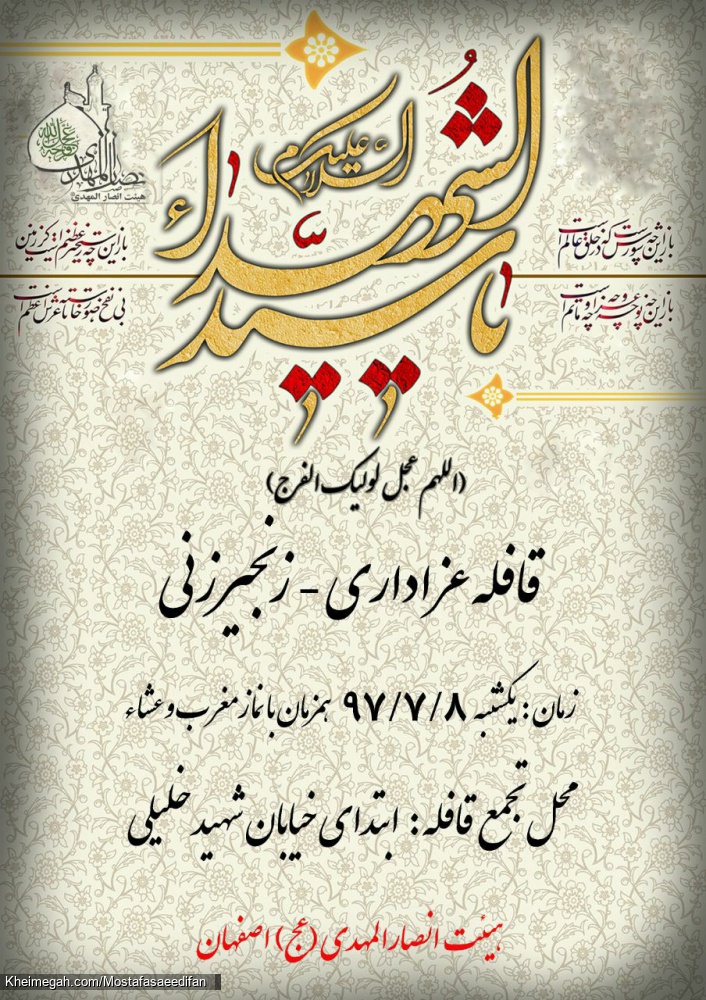 السلام علیکم
یا سید الشهداء
انصار المهدی
عجل الله فرجه
هیئت انصار المهدی
باز این چه شورش است که در خلق عالم است
باز این چه نوحه و چه عزا و چه ماتم است
باز این چه رستخیز عظیم است کز زمین
بی نفخ صور خاسته تا عرش اعظم است
(اللهم عجل لولیک الفرج)
قافله عزاداری - زنجیرزنی
زمان: یکشنبه ۹۷/۷/۸ همزمان با نماز مغرب و عشاء
محل تجمع قافله: ابتدای خیابان شهید خلیلی
هیئت انصارالمهدی (عج) اصفهان
Kheimegah.com/Mostafasaeedifan